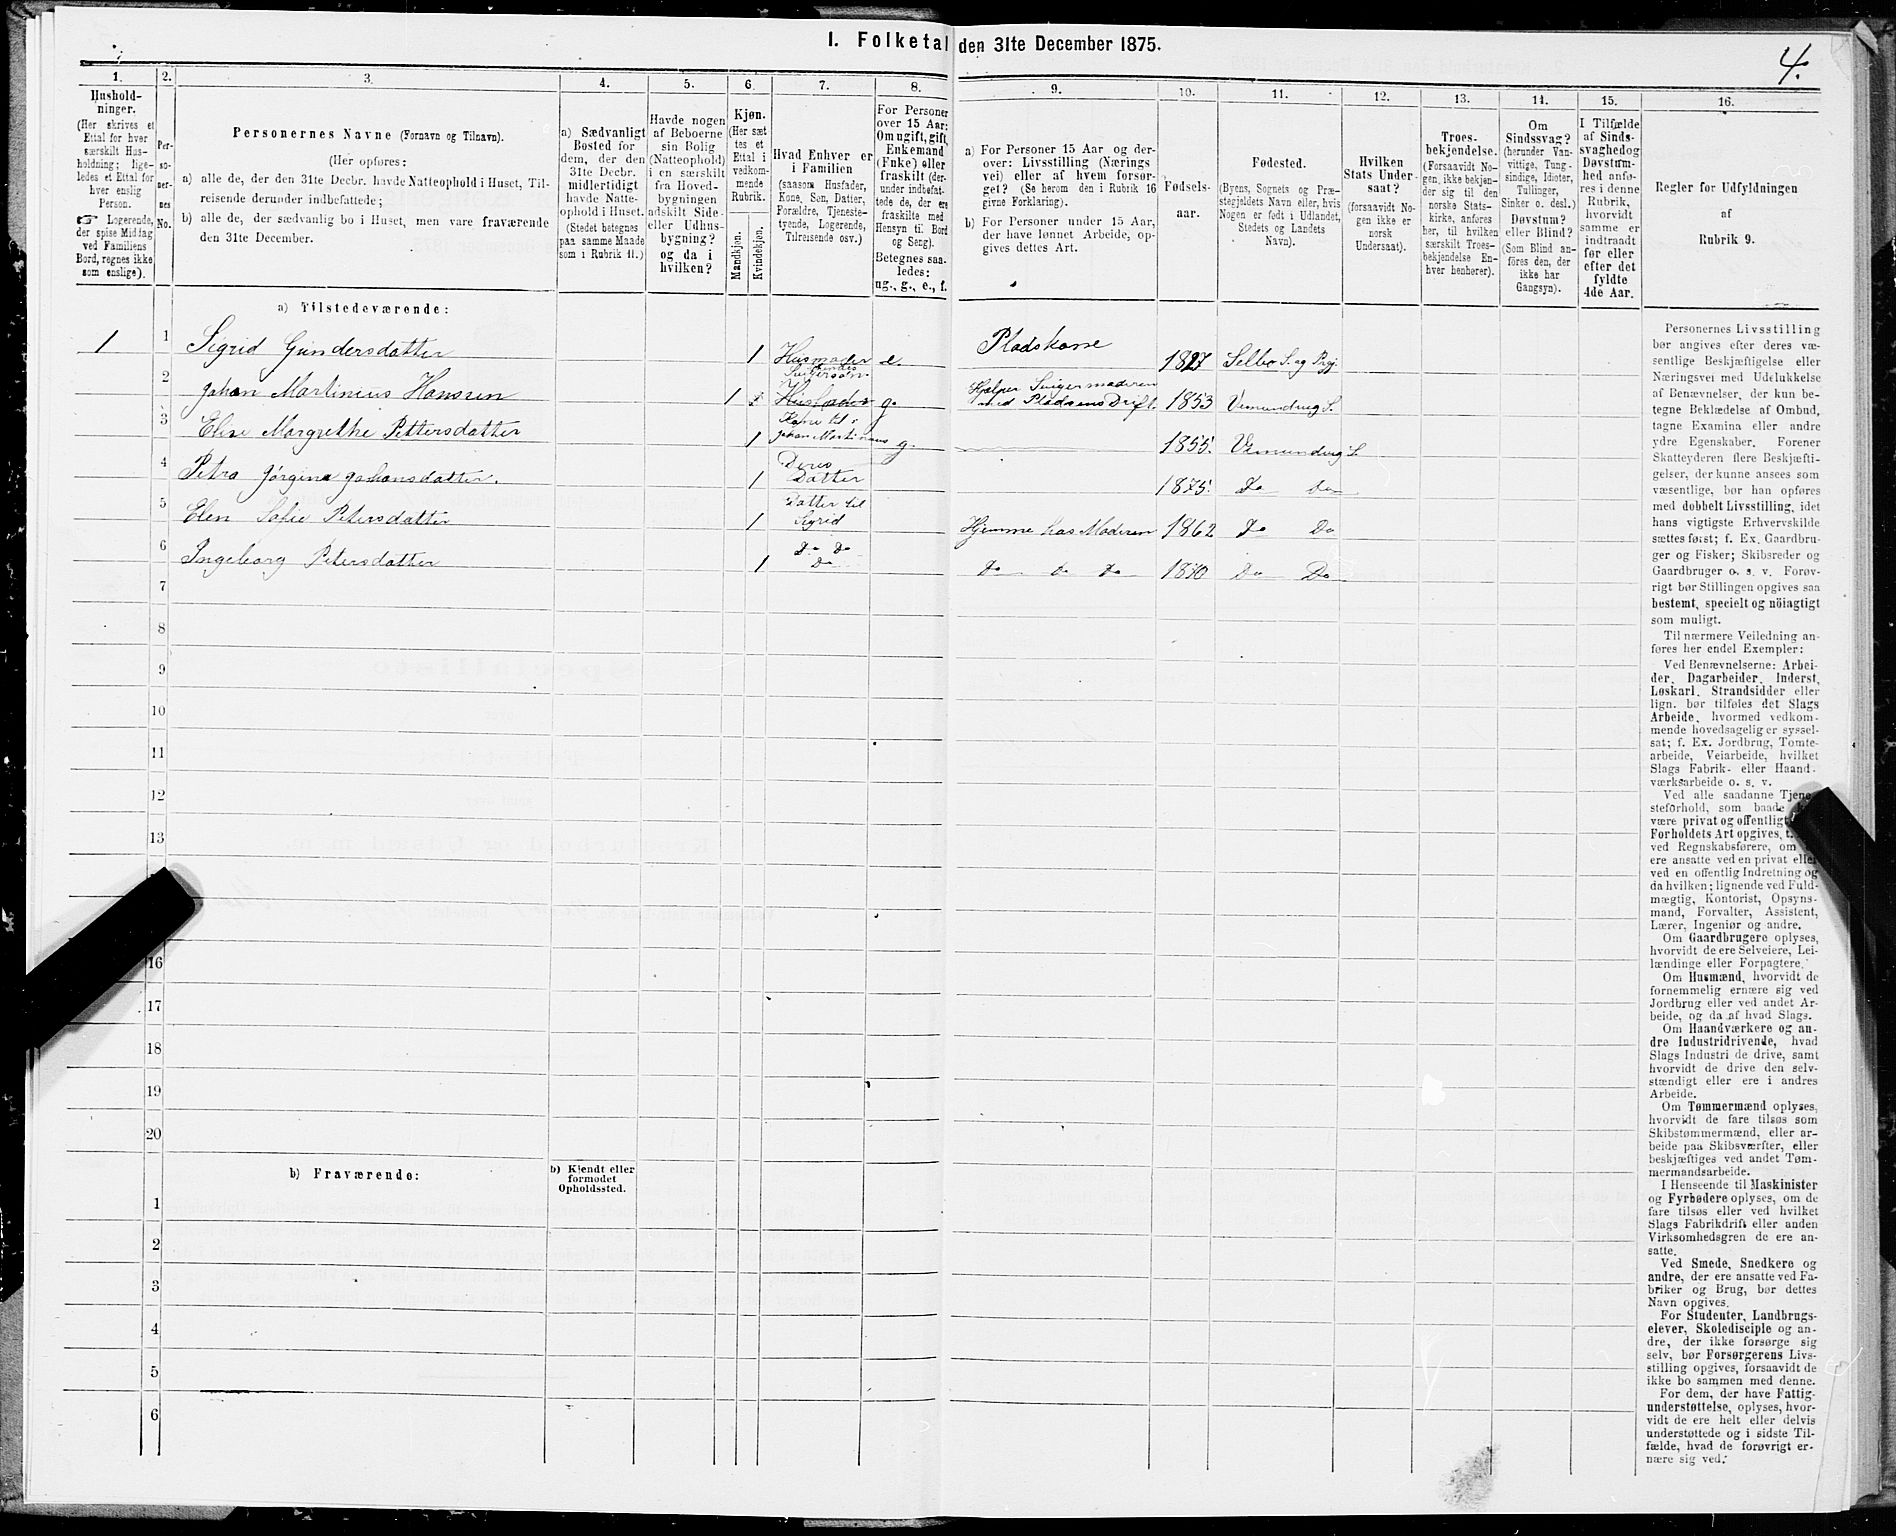 I. Folketal den 31te December 1875.
4.
1.
Hushold-
ninger.
(Her skrives et
Ettal for hver
særskilt Hus-
holdning; lige-
ledes et Ettal for
hver enslig
Person.
☞ Logerende,
der spise Middag
ved Familiens
Bord, regnes ikke
som enslige).
2.
Per-
so-
ner-
nes
No.
3.
Personernes Navne (Fornavn og Tilnavn).
(Her opføres:
a) alle de, der den 31te Decbr. havde Natteophold i Huset, Til-
reisende derunder indbefattede;
b) alle de, der sædvanlig bo i Huset, men vare fraværende
den 31te December.
4.
a) Sædvanligt
Bosted for
dem, der den
31te Decbr.
midlertidigt
havde Natte-
ophold i Huset.
(Stedet betegnes
paa samme Maade
som i Rubrik 11.)
5.
Havde nogen
af Beboerne
sin Bolig
(Natteophold)
i en særskilt
fra Hoved-
bygningen
adskilt Side-
eller Udhus-
bygning?
og da i
hvilken?
6.
Kjøn.
(Her sæt
tes et
Ettal i
vedkom-
mende
Rubrik.
Mandkjøn.
Kvindekjøn.
7.
Hvad Enhver er
i Familien
(saasom Husfader,
Kone, Søn, Datter,
Forældre, Tjeneste-
tyende, Logerende,
Tilreisende osv.)
8.
For Personer
over 15 Aar:
Om ugift, gift,
Enkemand
(Enke) eller
fraskilt (der-
under indbefat-
tede de, der ere
fraskilte med
Hensyn til Bord
og Seng).
Betegnes saa-
ledes:
ug., g., e., f.
9.
a) For Personer 15 Aar og der-
over: Livsstilling (Nærings
vei) eller af hvem forsør-
get? (Se herom den i Rubrik 16
givne Forklaring).
b) For Personer under 15 Aar,
der have lønnet Arbeide, op-
gives dettes Art.
10.
Fødsels-
aar.
11.
Fødested.
(Byens, Sognets og Præ-
stegjeldets Navn eller, hvis
Nogen er født i Udlandet,
Stedets og Landets
Navn).
12.
Hvilken
Stats Under-
saat?
(forsaavidt No-
gen ikke er
norsk
Undersaat).
13.
Troes-
bekjendelse.
(Forsaavidt No-
gen, ikke bekjen-
der sig til den
norske Stats-
kirke, anføres
her, til hvilken
særskilt Troes-
bekjendelse En-
hver henhører).
14.
Om
Sindssvag?
(herunder Van-
vittige, Tung-
sindige, Idioter,
Tullinger,
Sinker o. desl.)
Døvstum?
eller Blind?
(Som Blind an-
føres den, der
ikke har
Gangsyn).
15.
I Tilfælde
af Sinds-
svaghed og
Døvstum-
hed anfø-
res i denne
Rubrik,
hvorvidt
samme er
indtraadt
før eller
efter det
fyldte
4de Aar.
16.
Regler for Udfyldningen
af
Rubrik 9.
a) Tilstedeværende:
1 1 Sigrid Gundersdatter 1 Husmoder e. Pladskone 1827 Selbo S. og Prgj.
2 Johan Martinius Hansen 1 Hendes Svigersøn Husfader g. Hjælper Svigermoderen med Pladsens Drift 1853 S.
3 Elise Margrethe Pettersdatter 1 Kone til Johan Martinius g. 1855 S
4 Petra Jørgine Johansdatter. 1 Deres Datter 1875. Do Do
5 Elen Sofie Petersdatter 1 Datter til Sigrid Hjemme hos Moderen 1862 Do Do
6 Ingeborg Petersdatter 1 Do Do Do Do Do Do 1870 Do Do
7
8
9
10
11
12
13
16
17
18
19
20
b) Fraværende:
b) Kjendt eller
formodet
Opholdssted.
1
2
3
4
5
6
Personernes Livsstilling
bør angives efter deres væ-
sentlige Beskjæftigelse eller
Næringsvei med Udelukkelse
af Benævnelser, der kun be-
tegne Beklædelse af Ombud,
tagne Examina eller andre
ydre Egenskaber. Forener
Skatteyderen flere Beskjæfti-
gelser, der kunne ansees som
væsentlige, bør han opføres
med dobbelt Livsstilling, idet
hans vigtigste Erhvervskilde
sættes først; f. Ex. Gaardbru-
ger og Fisker; Skibsreder og
Gaardbruger o. s. v. Forøv-
rigt bør Stillingen opgives saa
bestemt, specielt og nöiagtigt
som muligt.
Til nærmere Veiledning an-
føres her endel Exempler:
Ved Benævnelserne: Arbei-
der, Dagarbeider, Inderst,
Løskarl, Strandsidder eller
lign. bør tilføies det Slags
Arbeide, hvormed vedkom-
mende hovedsagelig er syssel-
sat; f. Ex. Jordbrug, Tomte-
arbeide, Veiarbeide, hvilket
Slags Fabrik- eller Haand-
værksarbeide o. s. v.
Ved alle saadanne Tjene-
steforhold, som baade
være privat og offentligt
Forholdets Art opgives,
ved Regnskabsførere, om
ere ansatte ved en privat eller
ved en offentlig Indretning og
da hvilken; lignende ved Fuld-
mægtig, Kontorist, Opsyns-
mand, Forvalter, Assistent,
Lærer, Ingeniør og andre.
Om Gaardbrugere oplyses,
hvorvidt de ere Selveiere, Lei-
lændinge eller Forpagtere.
Om Husmænd, hvorvidt de
fornemmelig ernære sig ved
Jordbrug eller ved andet Ar-
beide, og da af hvad Slags.
Om Haandværkere og an-
dre Industridrivende, hvad
Slags Industri de drive, samt
hvorvidt de drive den selv-
stændigt eller ere i andres
Arbeide.
Om Tømmermænd oplyses,
hvorvidt de fare tilsøs som
Skibstømmermænd, eller ar-
beide paa Skibsværfter, eller
beskjæftiges ved andet Tøm-
mermandsarbeide.
I Henseende til Maskinister
og Fyrbødere oplyses, om de
fare tilsøs eller ved hvilket
Slags Fabrikdrift eller anden
Virksomhedsgren de ere an-
satte.
Ved Smede, Snedkere og
andre, der ere ansatte ved Fa-
briker og Brug, bør dettes
Navn opgives.
For Studenter, Landbrugs-
elever, Skoledisciple og an-
dre, der ikke forsørge sig
selv, bør Forsørgerens Livs-
stilling opgives, forsaavidt de
ikke bo sammen med denne.
For dem, der have Fattig-
understøttelse, oplyses, hvor-
vidt de ere helt eller delvis
understøttede og i sidste Til-
fælde, hvad de forøvrigt er-
nære sig ved.